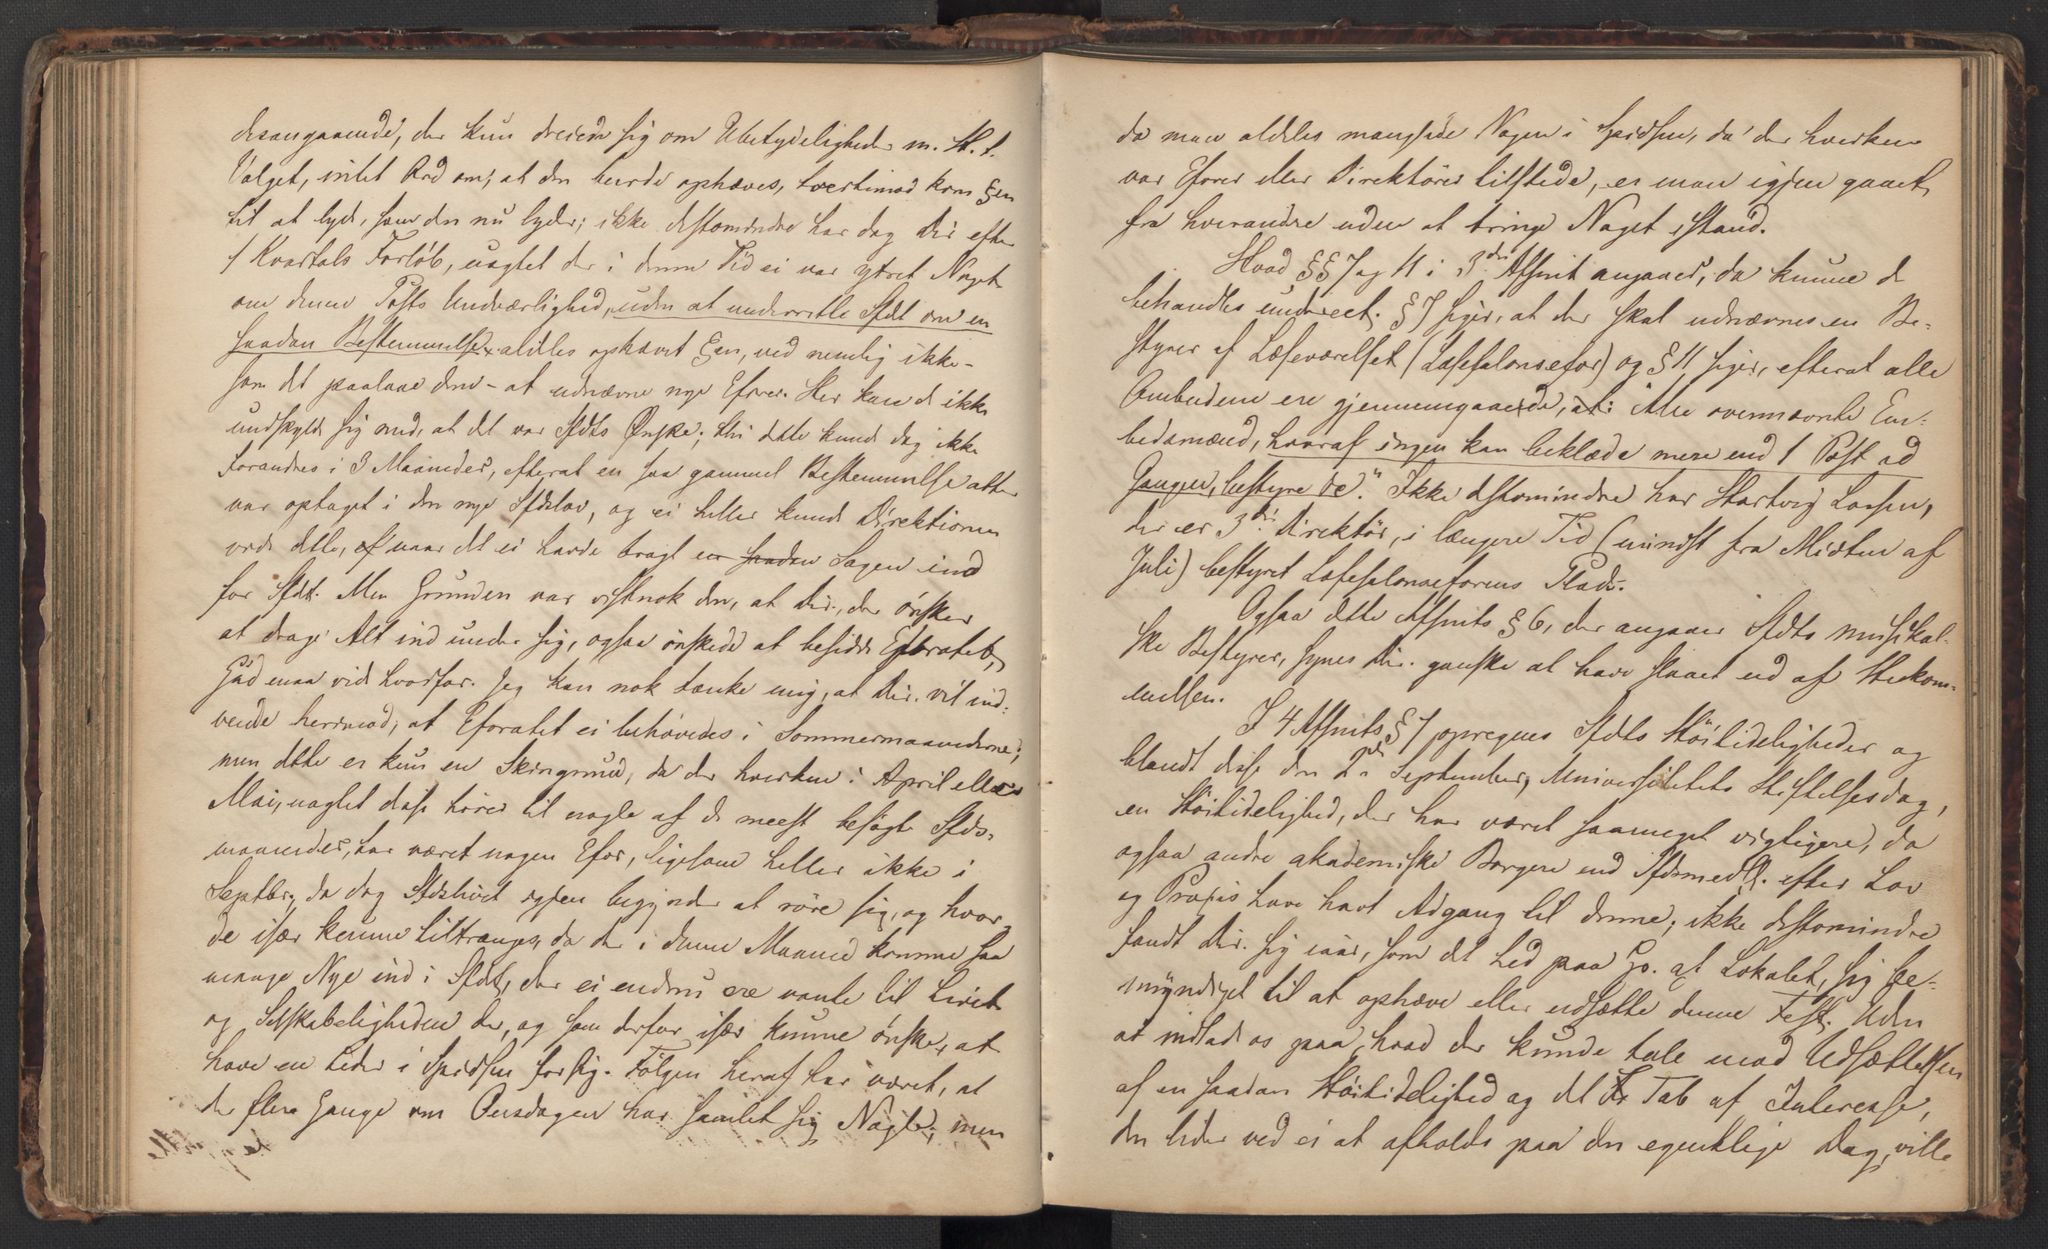 desangaaende, der kun dreiede sig om Ubetydeligheder m. H. t.
Valget, intet Ord om, at den burde ophæves, tvertimod kom §en
til at lyde, som den nu lyder; ikke destomindre har dog Dir efter
1 Kvartals Forløb, uagtet der i denne Tid ei var ytret Noget
om denne Posts Undværlighed, uden at underrette Sfdt om en
saadan Bestemmelse, aldeles ophævet §en, ved nemlig ikke –
som det paalaae dem – at udnævne nye Eforer. Her kan de ikke
undskylde sig med, at det var Sfdts Ønske; thi dette kunde dog ikke
forandres i 3 Maaneder, efterat en saa gammel Bestemmelse atter
var optaget i den nye Sfdslov, og ei heller kunde Direktionen
vide dette, naar det ei havde bragt en saadan Sagen ind
for Sfdt. Men Grunden var vistnok den, at Dir., der ønsker
at drage Alt ind under sig, ogsaa ønskede at besidde Eforatet,
Gud maa vide hvorfor. Jeg kan nok tænke mig, at Dir. vil ind-
vende herimod, at Eforatet ei behøvedes i Sommermaanederne;
men dette er kun en Skingrund, da der hverken i April eller
Mai, uagtet disse hører til nogle af de meest besøgte Sfds-
maaneder, har været nogen Efor, ligesom heller ikke i
Septbr., da dog Sfdslivet igjen begynder at røre sig, og hvor
de især kunne tiltrænges, da der i denne Maaned komme saa
mange Nye ind i Sfdt, der ei endnu ere vante til Livet
og Selskabeligheden der, og som derfor især kunne ønske, at
have en Leder i Spidsen for sig. Følgen heraf har været, at
de flere Gange om Onsdagen har samlet sig Nogle, men
da man aldeles manglede Nogen i Spidsen, da der hverken
var Eforer eller Direktører tilstede, er man igjen gaaet
fra hverandre uden at bringe Noget istand.
Hvad §§ 7 og 11 i 3die Afsnit angaaer, da kunne de
behandles underet. § 7 siger, at der skal udnævnes en Be-
styrer af Læseværelset (Læsesalonsefor) og § 11 siger, efterat alle
Ombudene ere gjennemgaaede, at: "Alle ovennævnte Em-
bedsmænd, hvoraf ingen kan beklæde mere end 1 Post ad
Gangen, bestyre de." Ikke destomindre har Hartvig Lassen,
der er 3die Direktør, i længere Tid (mindst fra Midten af
Juli) bestyret Læsesalonseforens Plads.
Ogsaa dette Afsnits § 6, der angaaer Sfdts musikal-
ske Bestyrer, synes Dir. ganske at have slaaet ud af Hukom-
melsen.
I 4 Afsnits § 7 opregnes Sfdts Høitideligheder og
blandt disse den 2den September, Universitetets Stiftelsesdag,
en Høitidelighed, der har været saameget vigtigere, da
ogsaa andre akademiske Borgere end Sfdsmedll. efter Lov
og Praxis have havt Adgang til denne; ikke destomindre
fandt Dir. sig iaar, som det hed paa Gr. af Lokalet, sig be-
myndiget til at ophæve eller udsætte denne Fest. Uden
at indlade os paa, hvad der kunde tale mod Udsættelsen
af en saadan Høitidelighed og det Tab af Interesse,
den lider ved ei at afholdes paa den egentlige Dag, ville